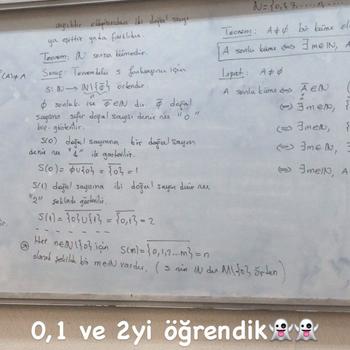 ya eşittir ya da farklıdır.
Teorem: ℕ sonsuz kümedir.
Sonuç: Teoremdeki s fonksiyonu için
s: ℕ → ℕ\{0} örtendir
∅ sonlu ise ∅̿ ∈ ℕ dir. ∅̿ doğal
sayısına sıfır doğal sayısı denir ve "0"
ile gösterilir.
S(0) doğal sayısına bir doğal sayısı
denir ve "1" ile gösterilir.
S(0) = ∅∪{0} = {0} = 1
S(1) doğal sayısına iki doğal sayısı denir ve
"2" şeklinde gösterilir.
S(1) = {0}∪{1} = {0,1} = 2
Her n∈ℕ\{0} için S(m) = {0,1,2...m} = n
olacak şekilde bir m∈ℕ vardır. (s nin ℕ den ℕ\{0} örten)
ℕ = {0,1,
Teorem: A ≠ ∅ bir küme
A sonlu küme ⇔ ∃m∈ℕ,
İspat: A ≠ ∅
A sonlu küme ⇔ A̿ ∈ ℕ
⇔ ∃m∈ℕ,
⇔ ∃m∈ℕ,
⇔ ∃m∈ℕ,
⇔ ∃m∈ℕ, A
0,1 ve 2yi öğrendik👻👻